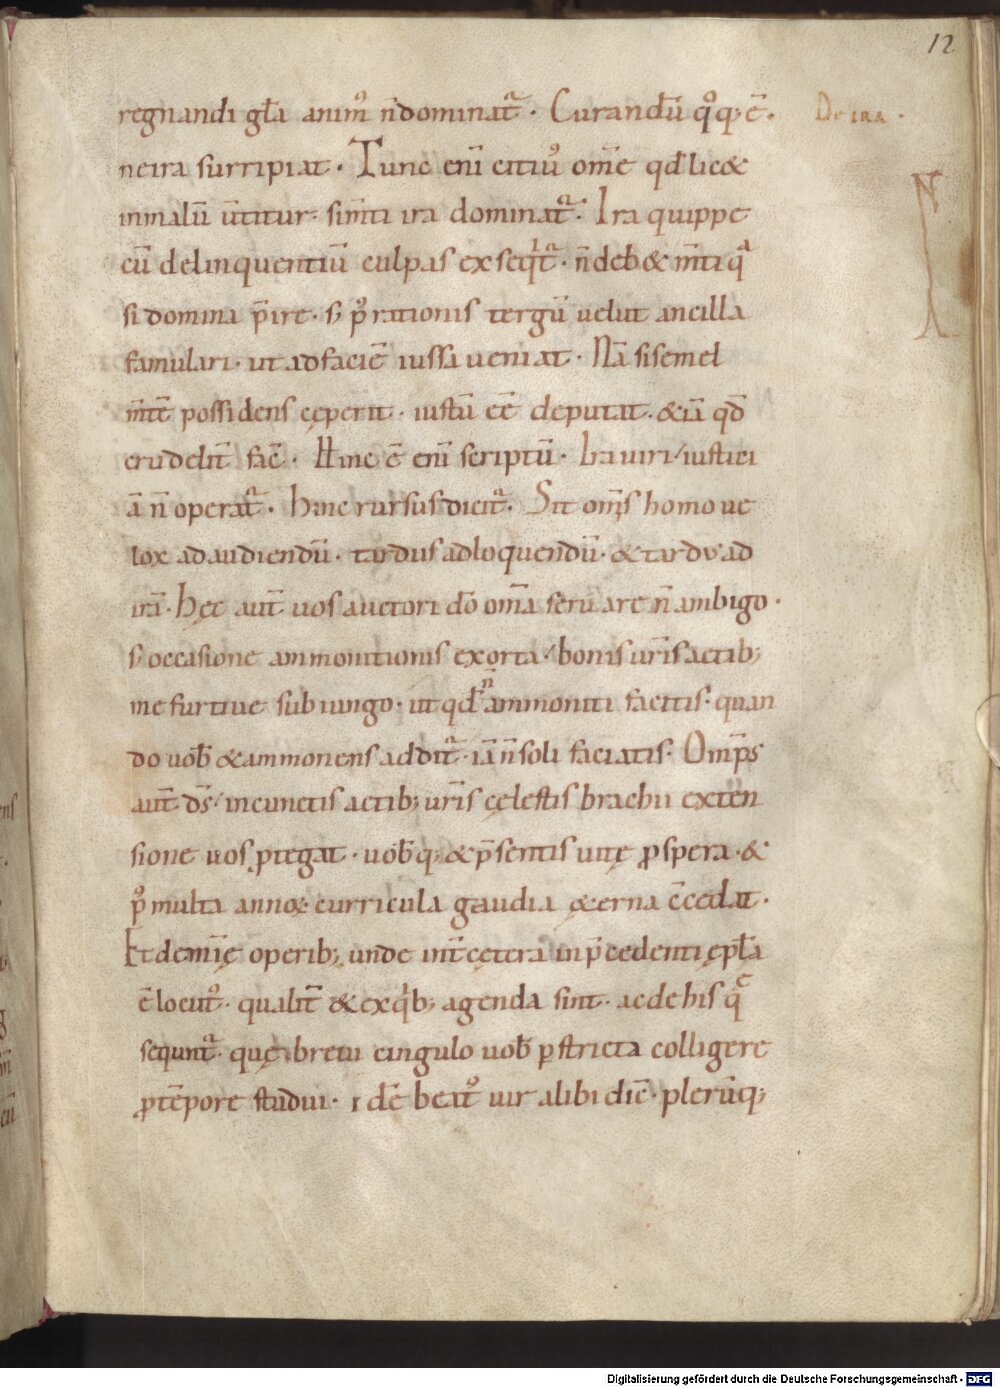 12
regnandi gła anim᷒ n̄ dominat᷑. Curandū q᷒q; ē. De ira.
ne ira surripiat. Tunc eni̅ citiu᷒ om̄e qd̄ lic&
in malū ūtitur. si m̄ti ira dominat᷑. Ira quippe
cū delinquentiū culpas exseq̇t᷑. n̄ deb& m̄ti qͣ
si domina p̄ire. s; p᷒ rationis tergū uelut ancilla
famulari. ut ad faciē iussa ueniat. Nā si semel
m̄tē possidens cęperit. iustū eē deputat. & iā qd̄
crudelit̄ fac̄. Hinc ē eni̅ scriptū. Ira uiri iustici
ā n̄ operat᷑. Hinc rursus dicit᷑. Sit om̄is homo ue
lox ad audiendū. tardus ad loquendū. & tardus ad
irā. Hęc aut̄ uos auctori dō om̄a seruare n̄ ambigo.
s; occasione ammonitionis exorta. bonis ur̄is actib;
me furtiue subiungo. ut qd̄ n̄ ammoniti facitis. quan
do uob̄ & ammonens addit᷑. iā n̄ soli faciatis. Omp̄s
aut̄ ds̄ in cunctis actib; ur̄is cęlestis brachii exten
sione uos ꝓtegat. uob̄q; & p̄sentis uitę ꝓspera. &
p᷒ multa annoꝝ curricula gaudia ęterna c̄cedat.
Et de mīę operib; unde int̄ cętera in p̄cedenti ępła
ē locut᷒. qualit̄ & ex qͥb; agenda sint. ac de his q̄
sequnt᷑. quę breui cingulo uob̄ ꝑstricta colligere
ꝓ tēpore studui. idē beat᷒ uir alibi dic̄. plerūq;
Digitalisierung gefördert durch die Deutsche Forschungsgemeinschaft - DFG